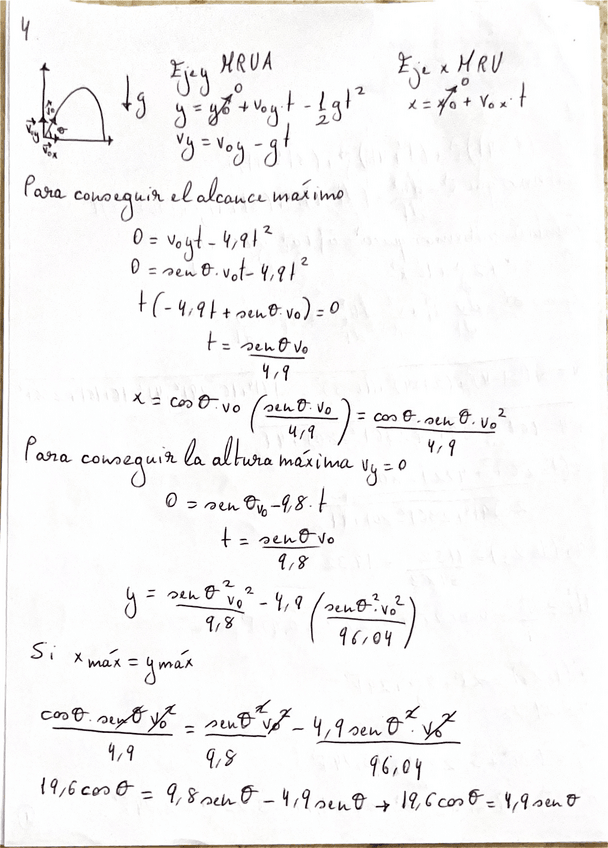 4.
Eje y MRUA
Eje x MRU
y = y0↗0 + v0y·t - 1/2 gt²
x = x0↗0 + v0x·t
vy = v0y - gt
↓g
v0
v0y
θ
v0x
Para conseguir el alcance máximo
0 = v0yt - 4,9t²
0 = sen θ·v0t - 4,9t²
t(-4,9t + senθ·v0) = 0
t = senθ v0 / 4,9
x = cosθ·v0 (senθ·v0 / 4,9) = cosθ·senθ·v0² / 4,9
Para conseguir la altura máxima vy = 0
0 = sen θv0 - 9,8·t
t = senθ v0 / 9,8
y = sen θ² v0² / 9,8 - 4,9 (senθ²·v0² / 96,04)
Si x máx = y máx
cosθ·senθ v0² / 4,9 = senθ² v0² / 9,8 - 4,9 sen θ²·v0² / 96,04
19,6 cos θ = 9,8 sen θ - 4,9 sen θ → 19,6 cos θ = 4,9 sen θ